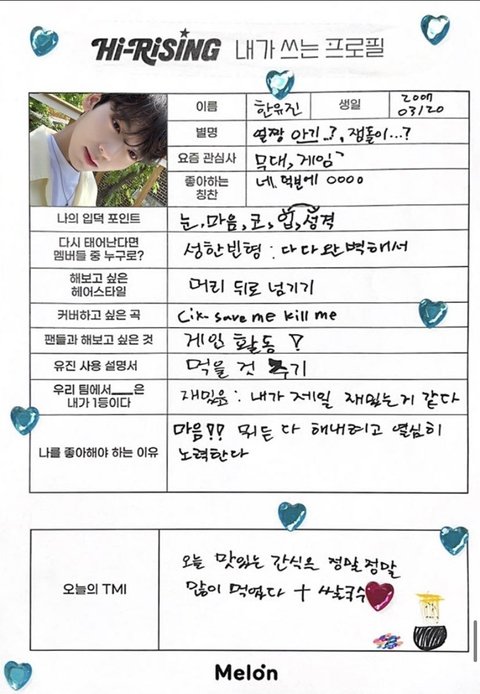 Hi-RiSiNG 내가 쓰는 프로필
이름 한유진 생일 2007 03/20
별명 얼짱 아기..?, 잼돌이...?
요즘 관심사 무대, 게임
좋아하는 칭찬 네 덕분에 ㅇㅇㅇㅇ
나의 입덕 포인트 눈, 마음, 코, 입, 성격
다시 태어난다면 멤버들 중 누구로? 성한빈형 : 다 다 완벽해서
해보고 싶은 헤어스타일 머리 뒤로 넘기기
커버하고 싶은 곡 Cix- save me kill me
팬들과 해보고 싶은 것 게임 활동 !
유진 사용 설명서 먹을 것 주기
우리 팀에서___은 내가 1등이다 재밌음 : 내가 제일 재밌는거 같다
나를 좋아해야 하는 이유 마음!! 뭐든 다 해내려고 열심히
노력한다
오늘의 TMI 오늘 맛있는 간식을 정말정말
많이 먹었다 + 쌀국수
Melon